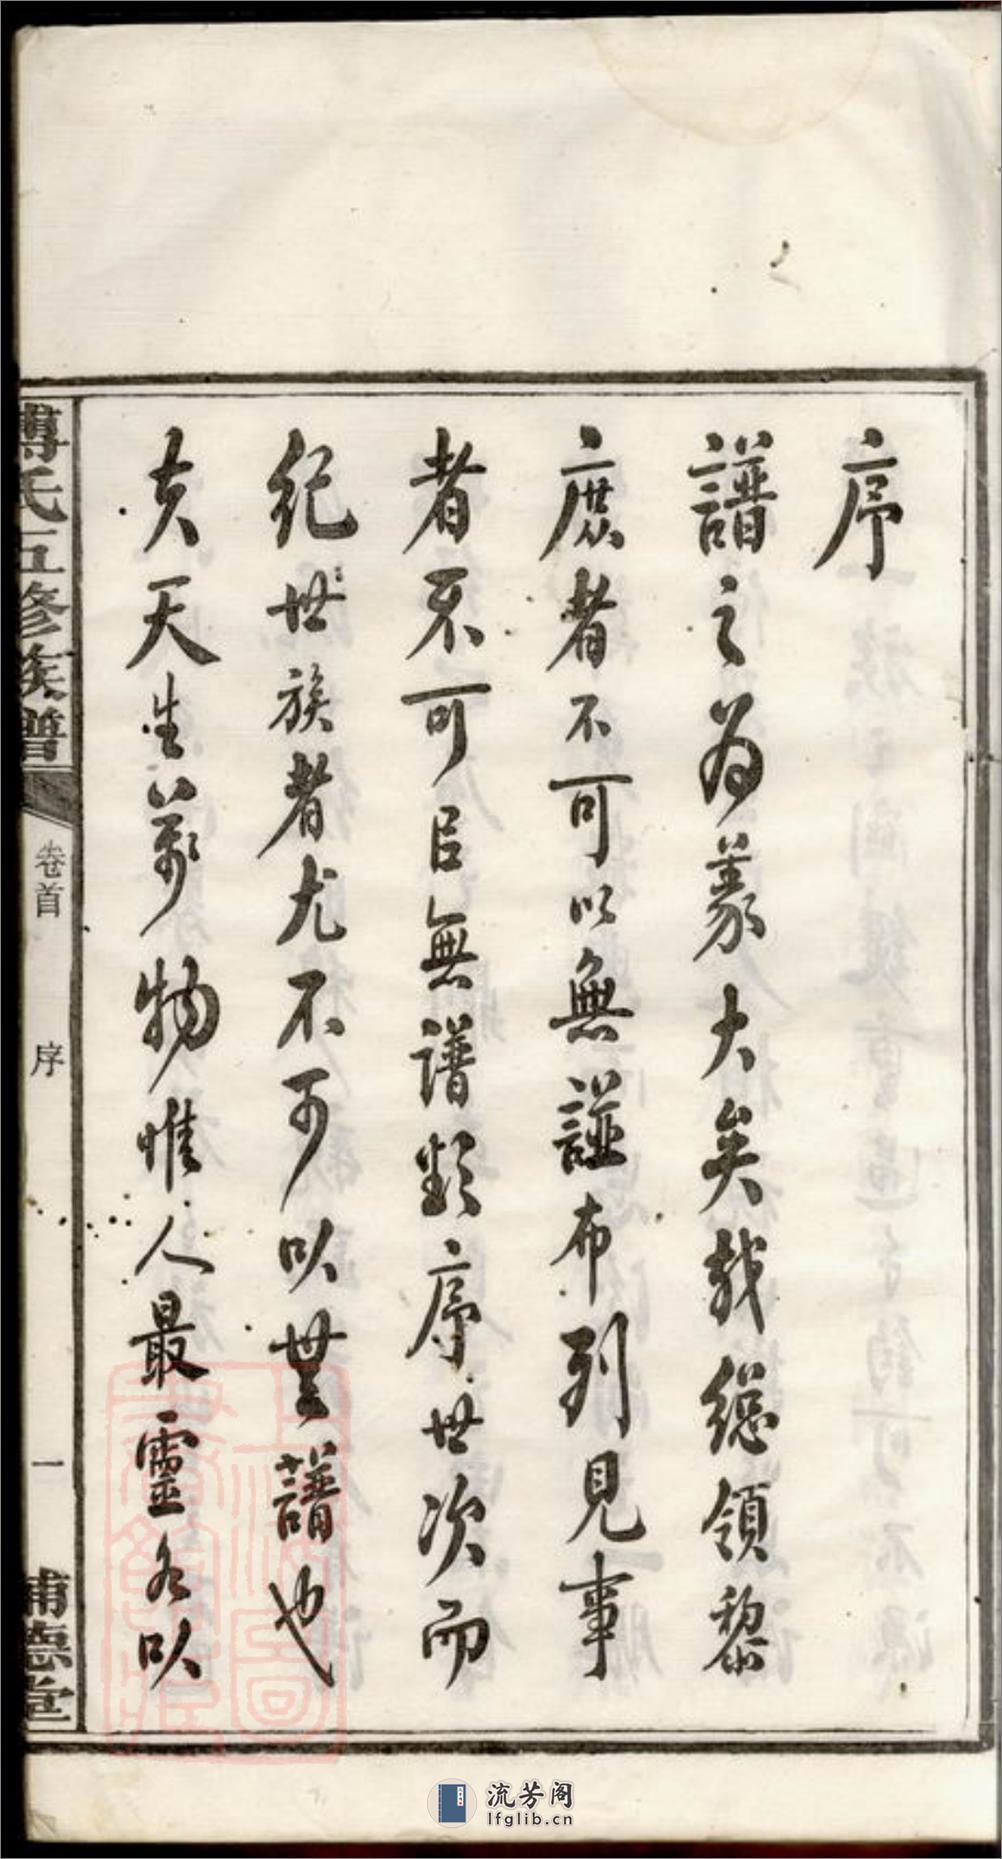 序
譜之為義大矣哉總領黎
庶者不可以無譜布列見事
者不可以無譜類序世次而
紀世族者尤不可以無譜也
夫天生萬物惟人最靈名以
傅氏五修族譜
卷首
序
一
浦德堂
上海圖書館藏
流芳阁
lfglib.cn